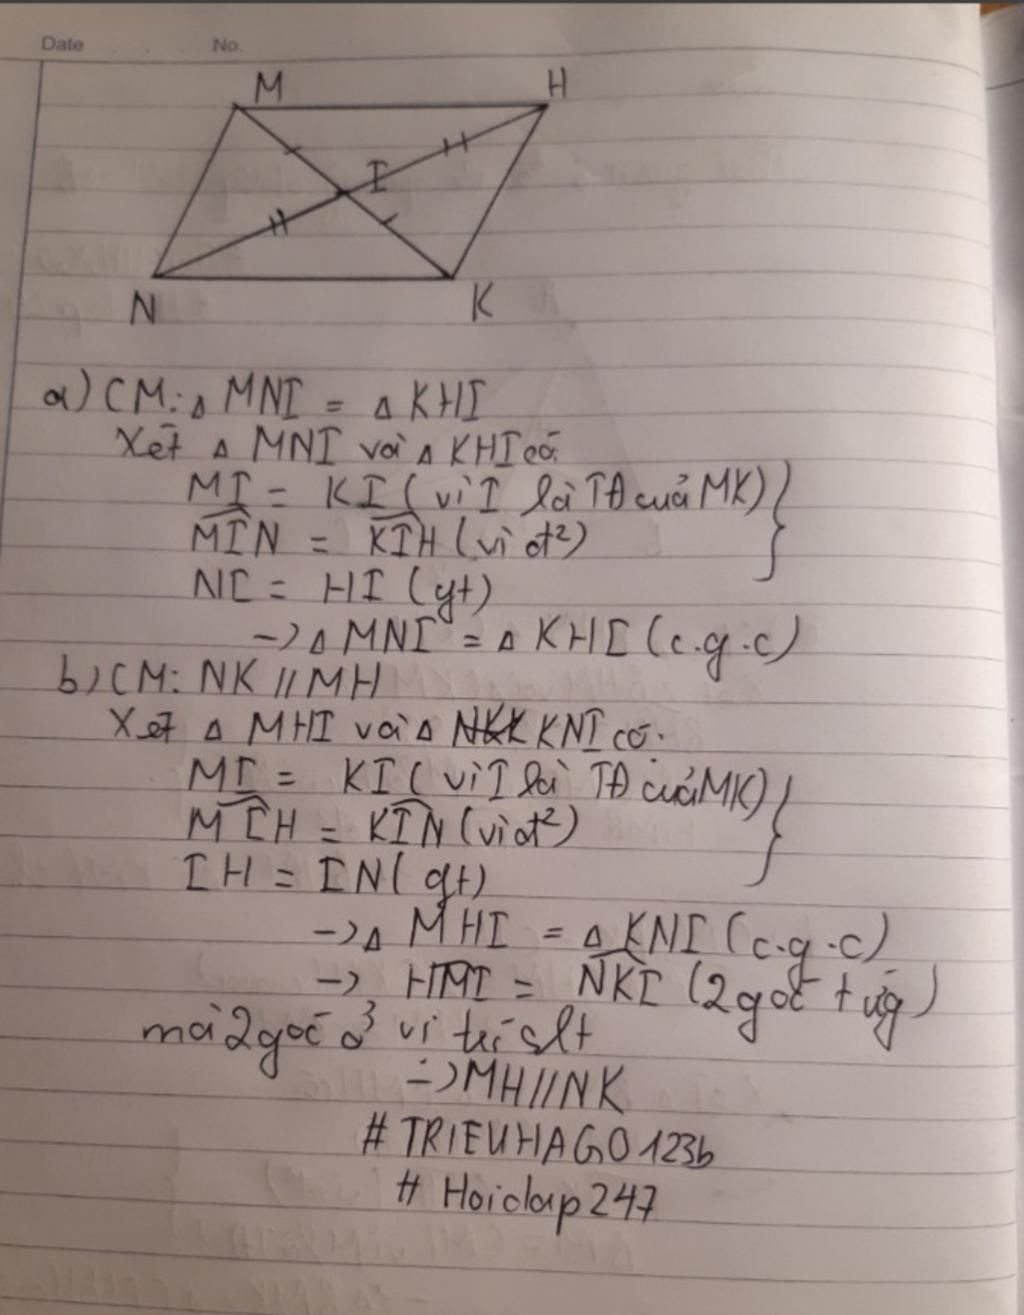 Date No.
M H
I
N K
a) CM: △ MNI = △ KHI
Xét △ MNI và △ KHI có:
MI = KI ( vì I là TĐ của MK)
MIN = KIH (vì đ²)
NI = HI (gt)
-> △ MNI = △ KHI (c.g.c)
b) CM: NK // MH
Xét △ MHI và △ KNI có:
MI = KI ( vì I là TĐ của MK)
MIH = KIN (vì đ²)
IH = IN ( gt)
-> △ MHI = △ KNI (c.g.c)
-> HMI = NKI (2 góc t ứg)
mà 2 góc ở vị trí slt
=> MH // NK
# TRIEUHAGO123b
# Hoidap247